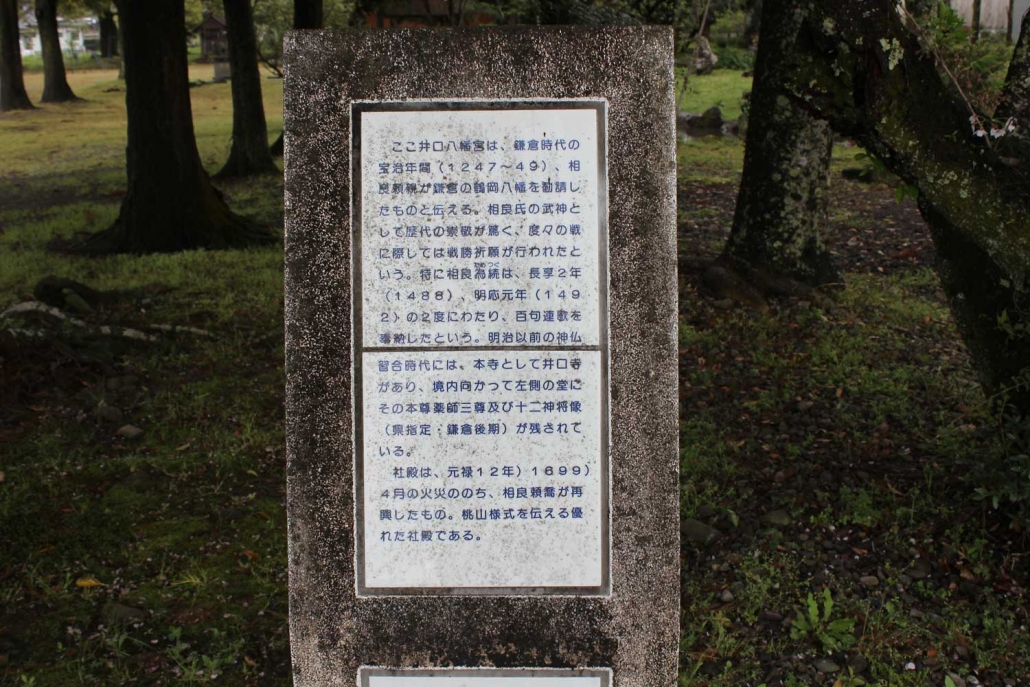 ここ井口八幡宮は、鎌倉時代の
宝治年間（1247～49）、相
良頼親が鎌倉の鶴岡八幡を勧請し
たものと伝える。相良氏の武神と
して歴代の崇敬が篤く、度々の戦
に際しては戦勝祈願が行われたと
いう。特に相良為続は、長享2年
（1488）、明応元年（149
2）の2度にわたり、百句連歌を
奉納したという。明治以前の神仏
習合時代には、本寺として井口寺
があり、境内向かって左側の堂に
その本尊薬師三尊及び十二神将像
（県指定・鎌倉後期）が残されて
いる。
社殿は、元禄12年）1699）
4月の火災ののち、相良頼喬が再
興したもの。桃山様式を伝える優
れた社殿である。